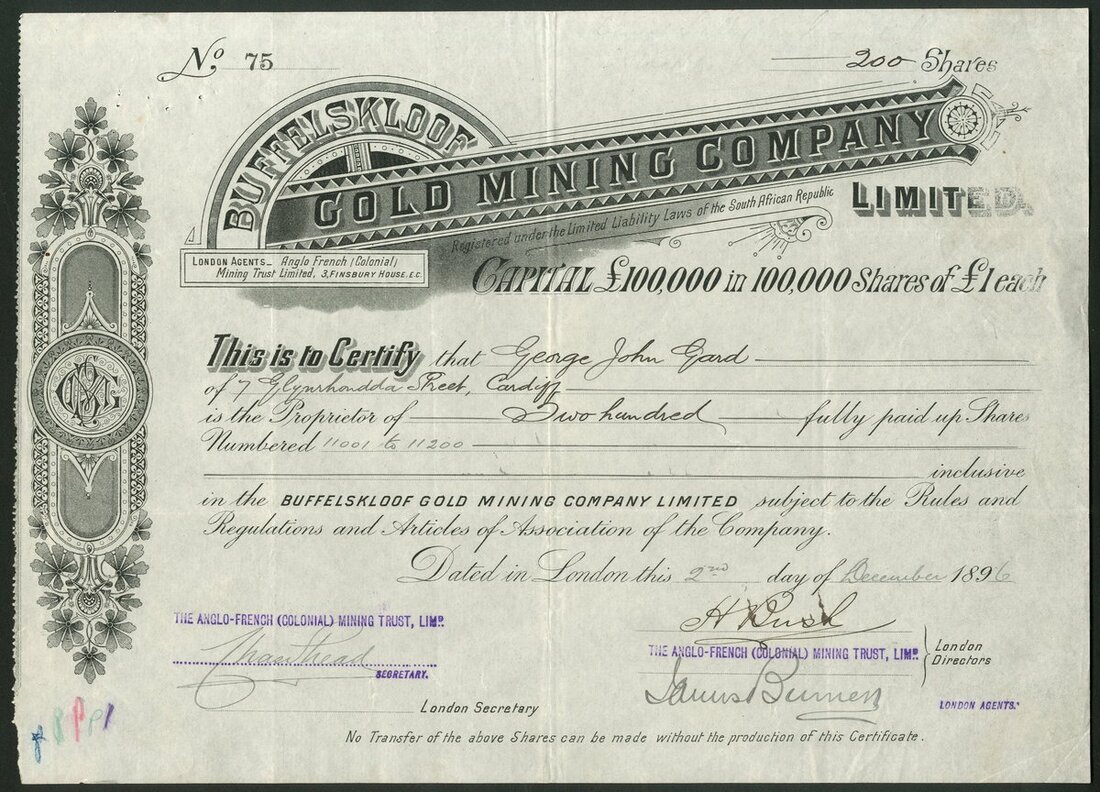 No 75
200 Shares
BUFFELSKLOOF
GOLD MINING COMPANY
LIMITED.
Registered under the Limited Liability Laws of the South African Republic
LONDON AGENTS_ Anglo French (Colonial)
Mining Trust Limited, 3, FINSBURY HOUSE, E.C.
CAPITAL £100,000 in 100,000 Shares of £1 each
This is to Certify that George John Gard
of 7 Glynrhondda Street, Cardiff
is the Proprietor of Two hundred fully paid up Shares
Numbered 11001 to 11200
inclusive
in the BUFFELSKLOOF GOLD MINING COMPANY LIMITED subject to the Rules and
Regulations and Articles of Association of the Company.
Dated in London this 2nd day of December 1896
THE ANGLO-FRENCH (COLONIAL) MINING TRUST, LIMD.
SECRETARY.
London Secretary
H Bush
THE ANGLO-FRENCH (COLONIAL) MINING TRUST, LIMD.
London
Directors
LONDON AGENTS.
No Transfer of the above Shares can be made without the production of this Certificate.